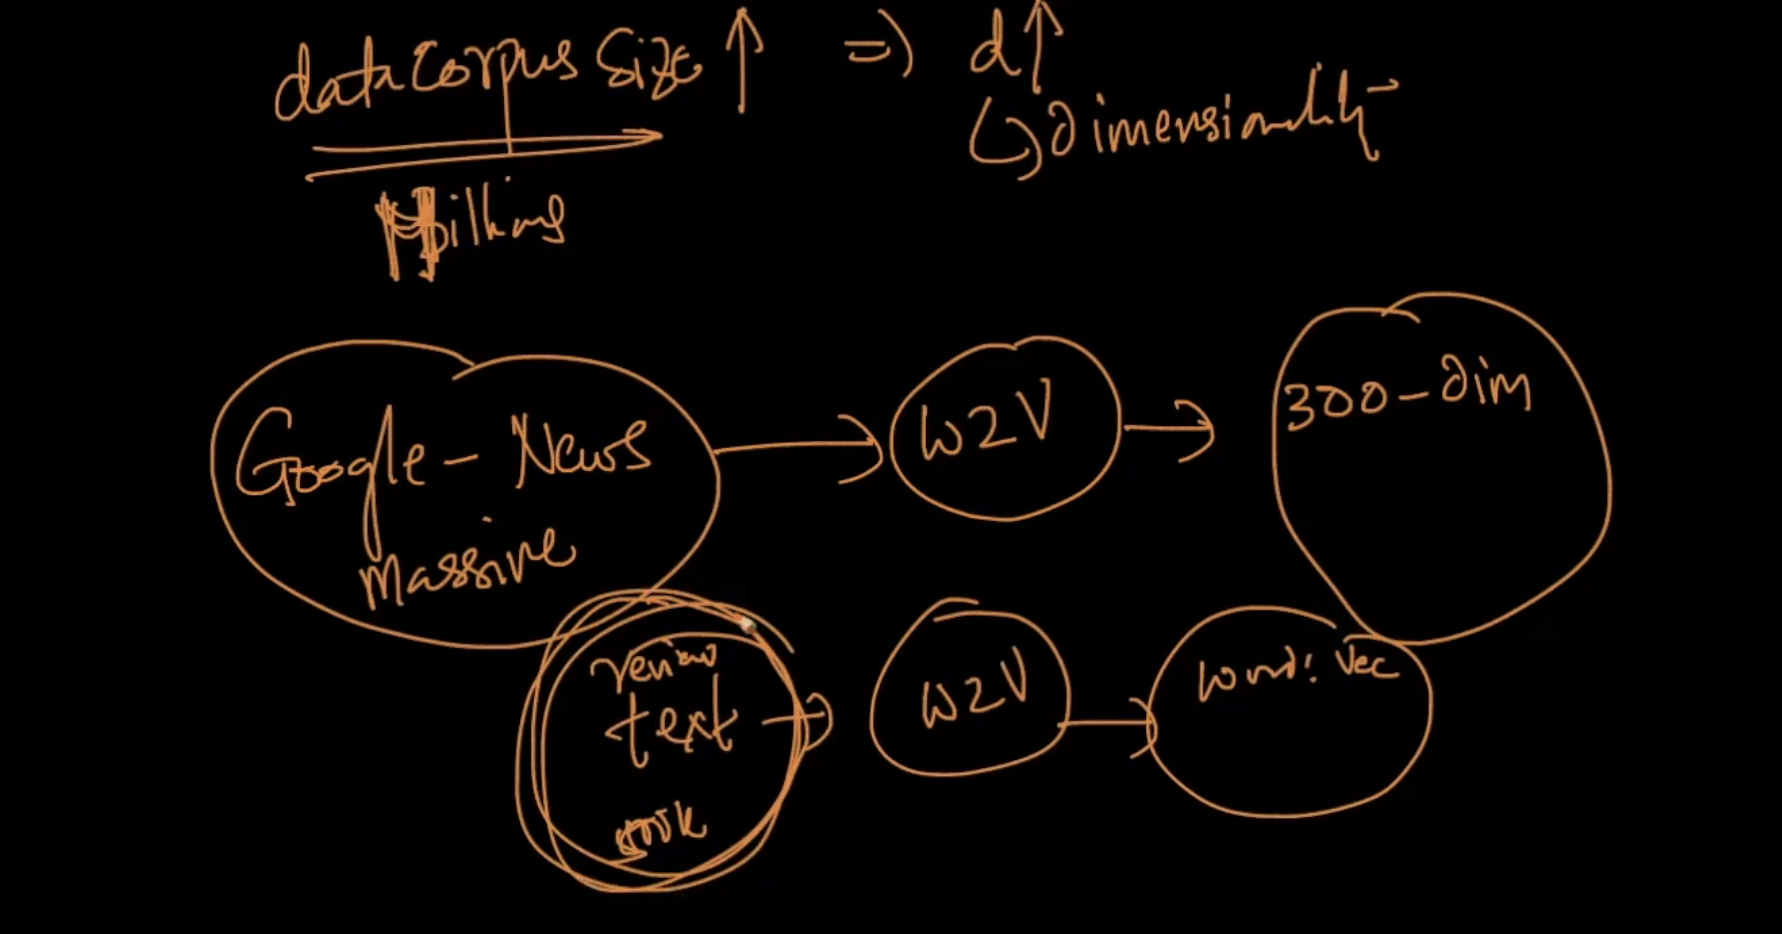 data corpus size ↑ => d↑
↳ dimensionality
Billions
Google - News
Massive
W2V
300-dim
review
text
W2V
word: vec